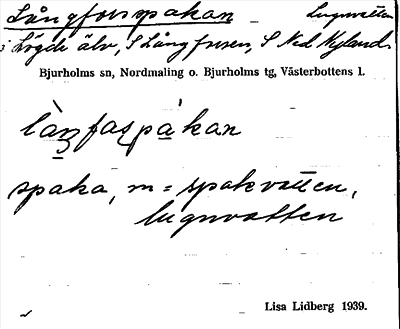 Långforsspakan Lugnvatten
i Lögde älv, S Långforsen, S Ned Nyland.
Bjurholms sn, Nordmaling o. Bjurholms tg, Västerbottens l.
làŋfaspákan
spaka, m = spakvatten,
lugnvatten
Lisa Lidberg 1939.